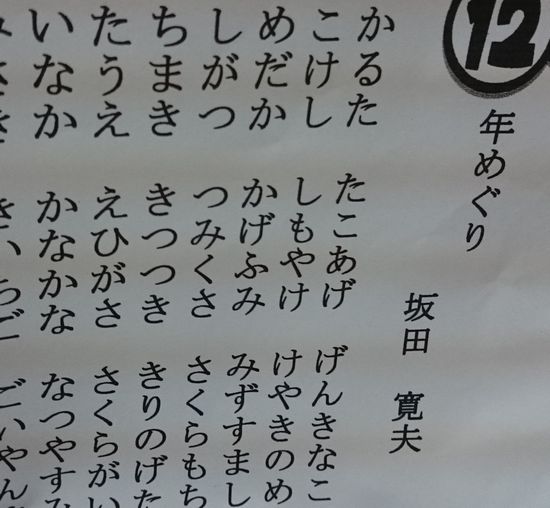 12
年めぐり
坂田 寛夫
かるた たこあげ げんきなこ
こけし しもやけ けやきのめ
めだか かげふみ みずすまし
しがつ つみくさ さくらもち
ちまき きつつき きりのげた
たうえ えひがさ さくらがい
いなか かなかな なつやすみ